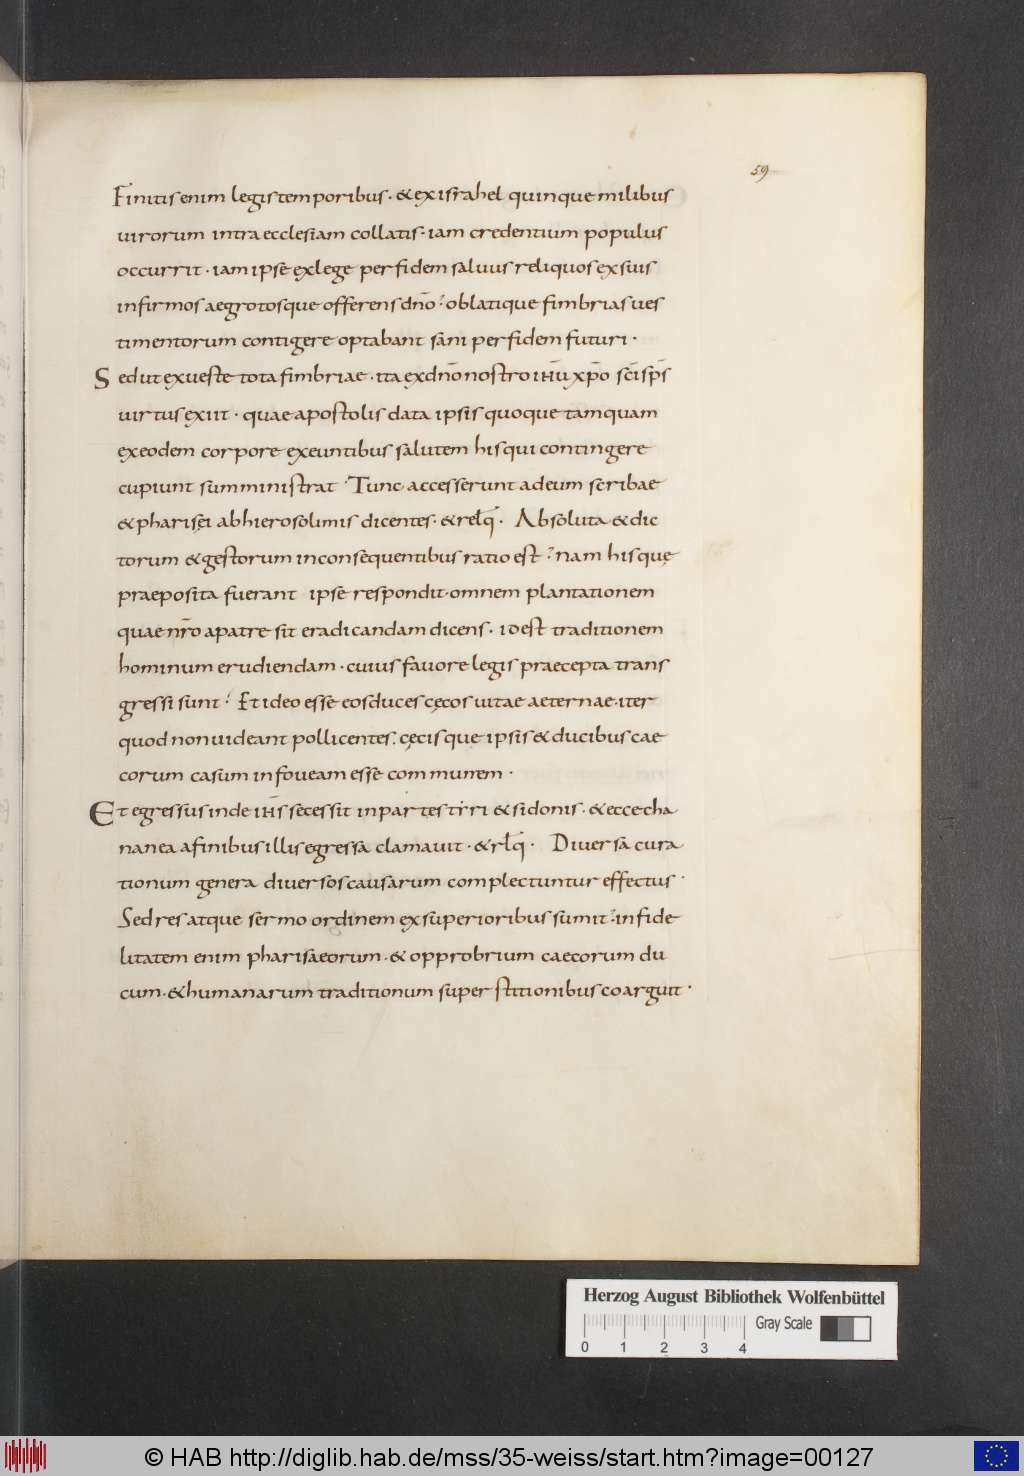 59
Finitis enim legis temporibus · & ex israhel quinque milibus
uirorum intra ecclesiam collatis · iam credentium populus
occurrit · iam ipse ex lege per fidem saluus reliquos ex suis
infirmos aegrotosque offerens dn̄o · oblatique fimbrias ues
timentorum contigere optabant sani per fidem futuri ·
Sed ut ex ueste tota fimbriae · ita ex dn̄o nostro ihū xp̄o sc̄i sp̄s
uirtus exiit · quae apostolis data ipsis quoque tamquam
ex eodem corpore exeuntibus salutem his qui contingere
cupiunt sumministrat · Tunc accesserunt ad eum scribae
& pharisęi ab hierosolimis dicentes · & relq̄ · Absoluta & dic
torum & gestorum in consequentibus ratio est · nam his quę
praeposita fuerant ipse respondit · omnem plantationem
quae nr̄o a patre sit eradicandam dicens · id est traditionem
hominum erudiendam · cuius fauore legis praecepta trans
gressi sunt · Et ideo esse eos duces cęcos uitae aeternae · iter
quod non uideant pollicentes · cęcisque ipsis & ducibus cae
corum casum in foueam esse communem ·
Et egressus inde ihs̄ secessit in partes tyri & sidonis · & ecce cha
nanea a finibus illis egressa clamauit · & rlq̄ · Diuersa cura
tionum genera diuersos causarum complectuntur effectus ·
Sed res atque sermo ordinem ex superioribus sumit · infide
litatem enim pharisaeorum · & opprobrium caecorum du
cum · & humanarum traditionum superstitionibus coarguit ·
Herzog August Bibliothek Wolfenbüttel
Gray Scale
0 1 2 3 4
© HAB http://diglib.hab.de/mss/35-weiss/start.htm?image=00127